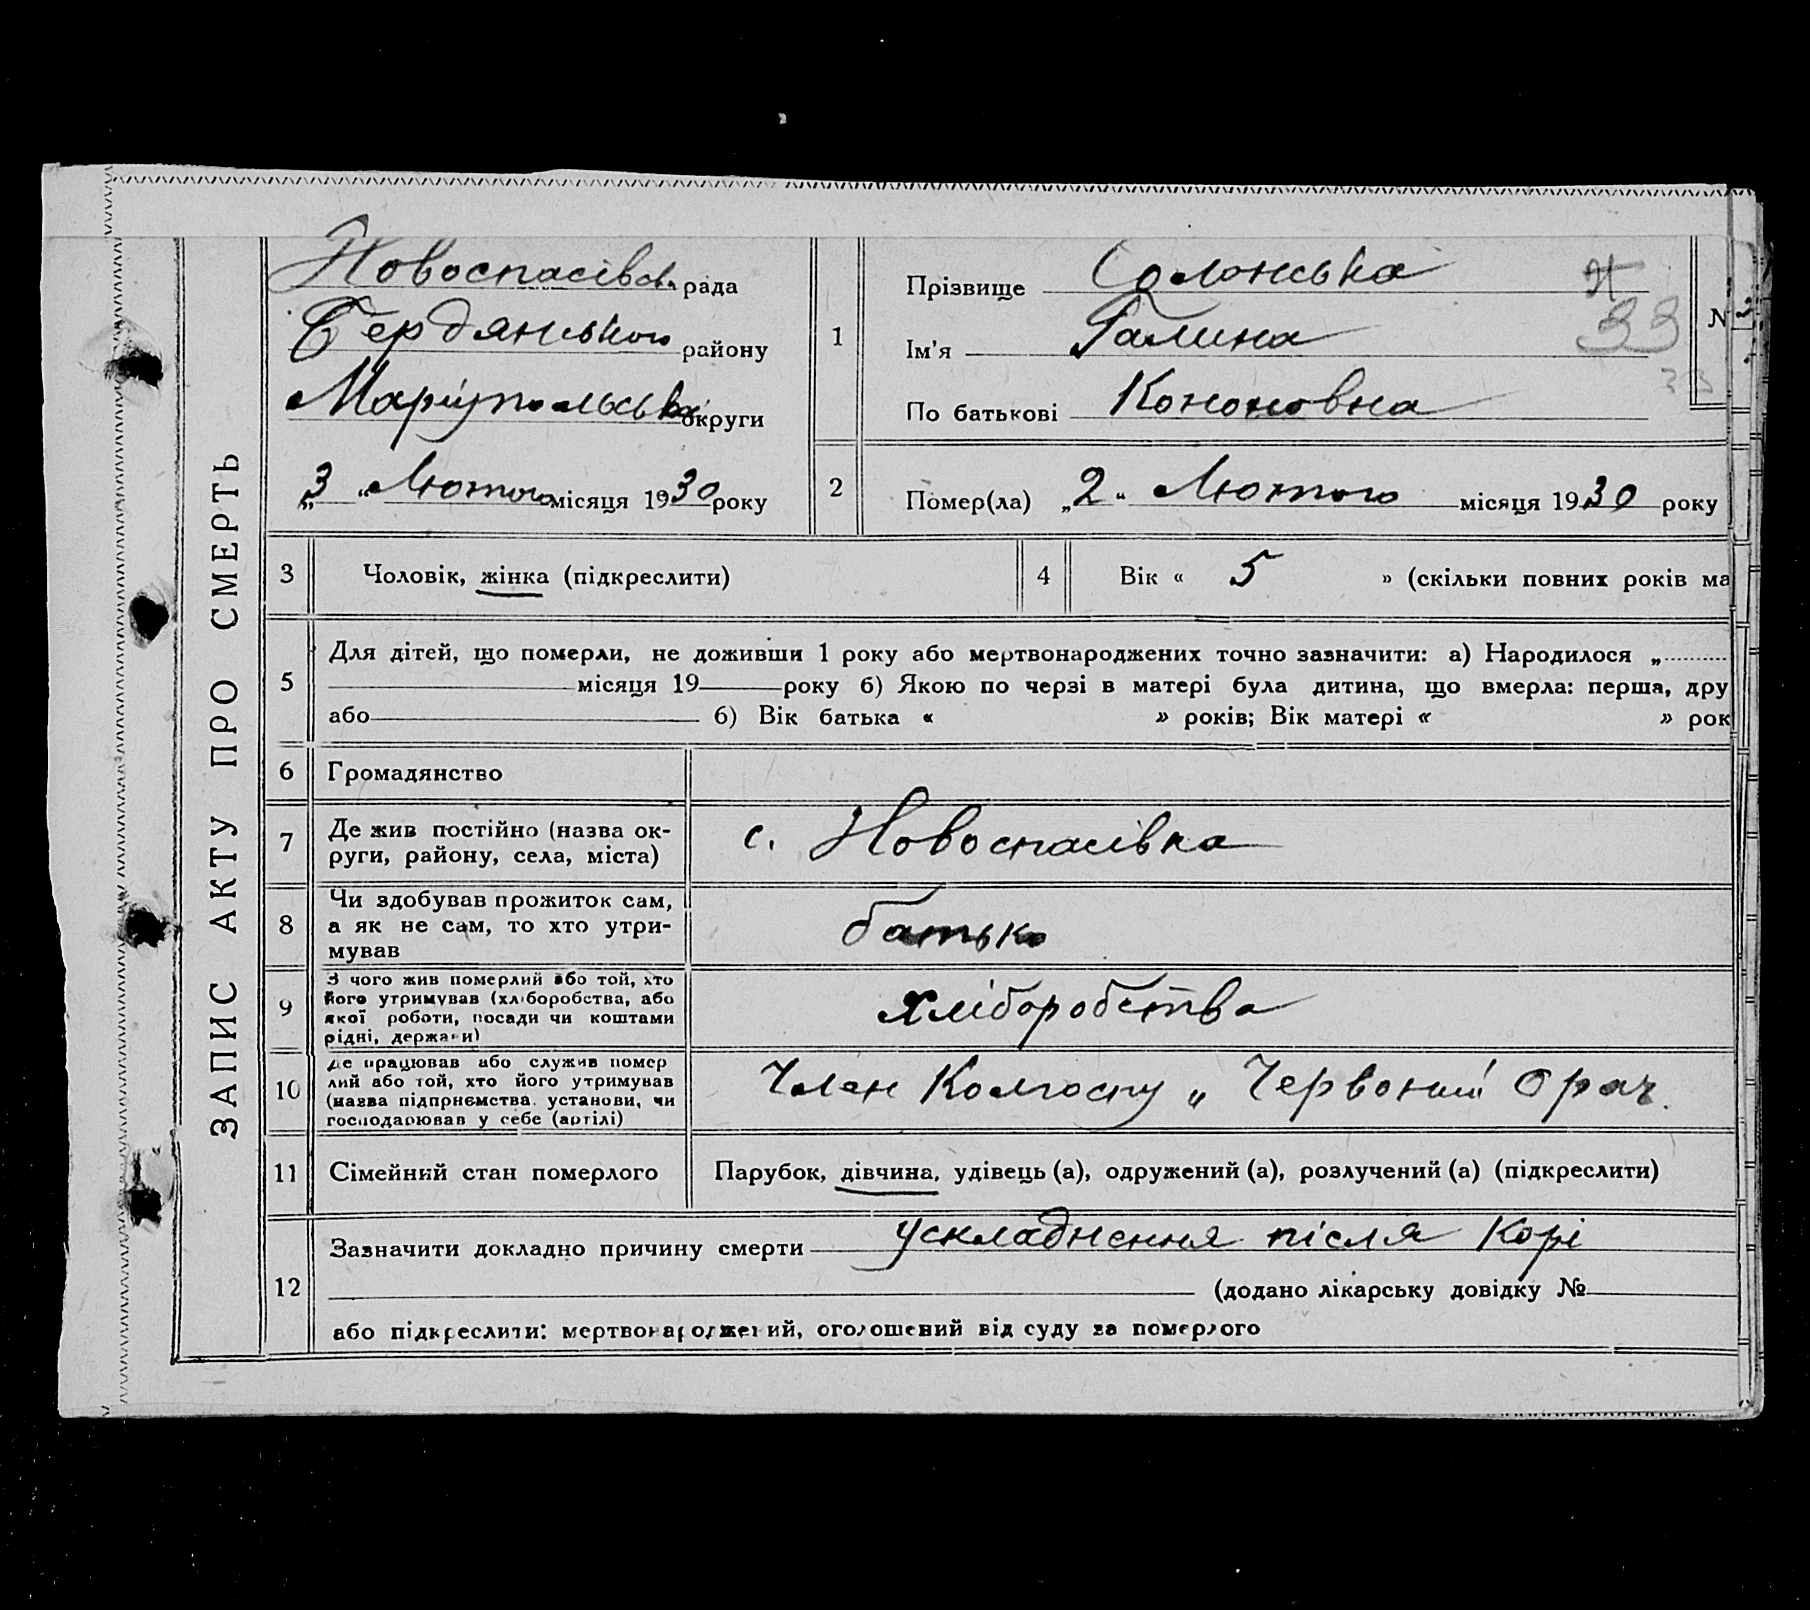 ЗАПИС АКТУ ПРО СМЕРТЬ
Новоспасівськ. рада
Бердянського району
Маріупольської округи
„3“ Лютого місяця 1930 року
1
Прізвище Солонська
Ім'я Галина
По батькові Кононовна
Н
33
N
2
Помер(ла) „2“ Лютого місяця 1930 року
3 Чоловік, жінка (підкреслити)
4 Вік « 5 » (скільки повних років ма
5 Для дітей, що померли, не доживши 1 року або мертвонароджених точно зазначити: а) Народилося „
місяця 19 року б) Якою по черзі в матері була дитина, що вмерла: перша, дру
або б) Вік батька « » років; Вік матері « » рок
6 Громадянство
7 Де жив постійно (назва ок-
руги, району, села, міста)
с. Новоспасівка
8 Чи здобував прожиток сам,
а як не сам, то хто утри-
мував
батько
9 З чого жив померлий або той, хто
його утримував (хліборобства, або
якої роботи, посади чи коштами
рідні, держави)
хліборобства
10 Де працював або служив помер
лий або той, хто його утримував
(назва підприємства, установи, чи
господарював у себе (артілі)
Член Колгоспу „Червоний Орач.
11 Сімейний стан померлого
Парубок, дівчина, удівець (а), одружений (а), розлучений (а) (підкреслити)
12 Зазначити докладно причину смерти ускладнення після Корі
(додано лікарську довідку №
або підкреслити: мертвонароджений, оголошений від суду за померлого